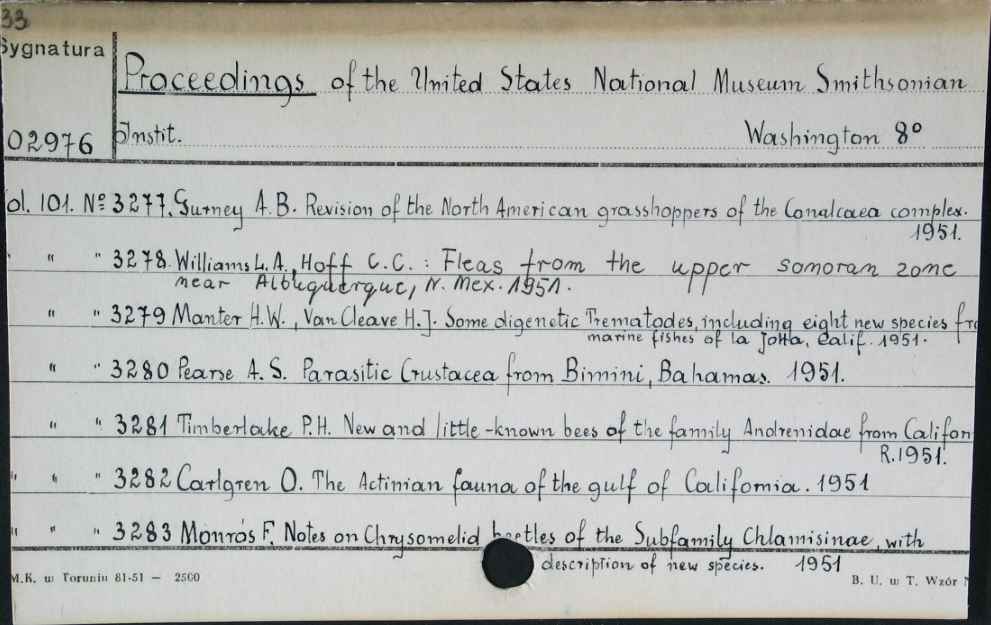 33
Sygnatura
Proceedings of the United States National Museum Smithsonian
02976 Instit. Washington 8°
ol. 101. № 3277. Gurney A.B. Revision of the North American grasshoppers of the Conalcaea complex.
1951.
" " " 3278 Williams L.A., Hoff C.C. : Fleas from the upper sonoran zone
near Albuquerque, N. Mex. 1951.
" " 3279 Manter H.W., Van Cleave H.J. Some digenetic Trematodes, including eight new species fro
marine fishes of la Jolla, Calif. 1951.
" " 3280 Pearse A. S. Parasitic Crustacea from Bimini, Bahamas. 1951.
" " 3281 Timberlake P.H. New and little-known bees of the family Andrenidae from Califon
R.1951.
" " " 3282 Carlgren O. The Actinian fauna of the gulf of California. 1951
" " " 3283 Monrós F. Notes on Chrysomelid beetles of the Subfamily Chlamisinae, with
description of new species. 1951
M.K. w Toruniu 81-51 — 2500 B. U. w T. Wzór